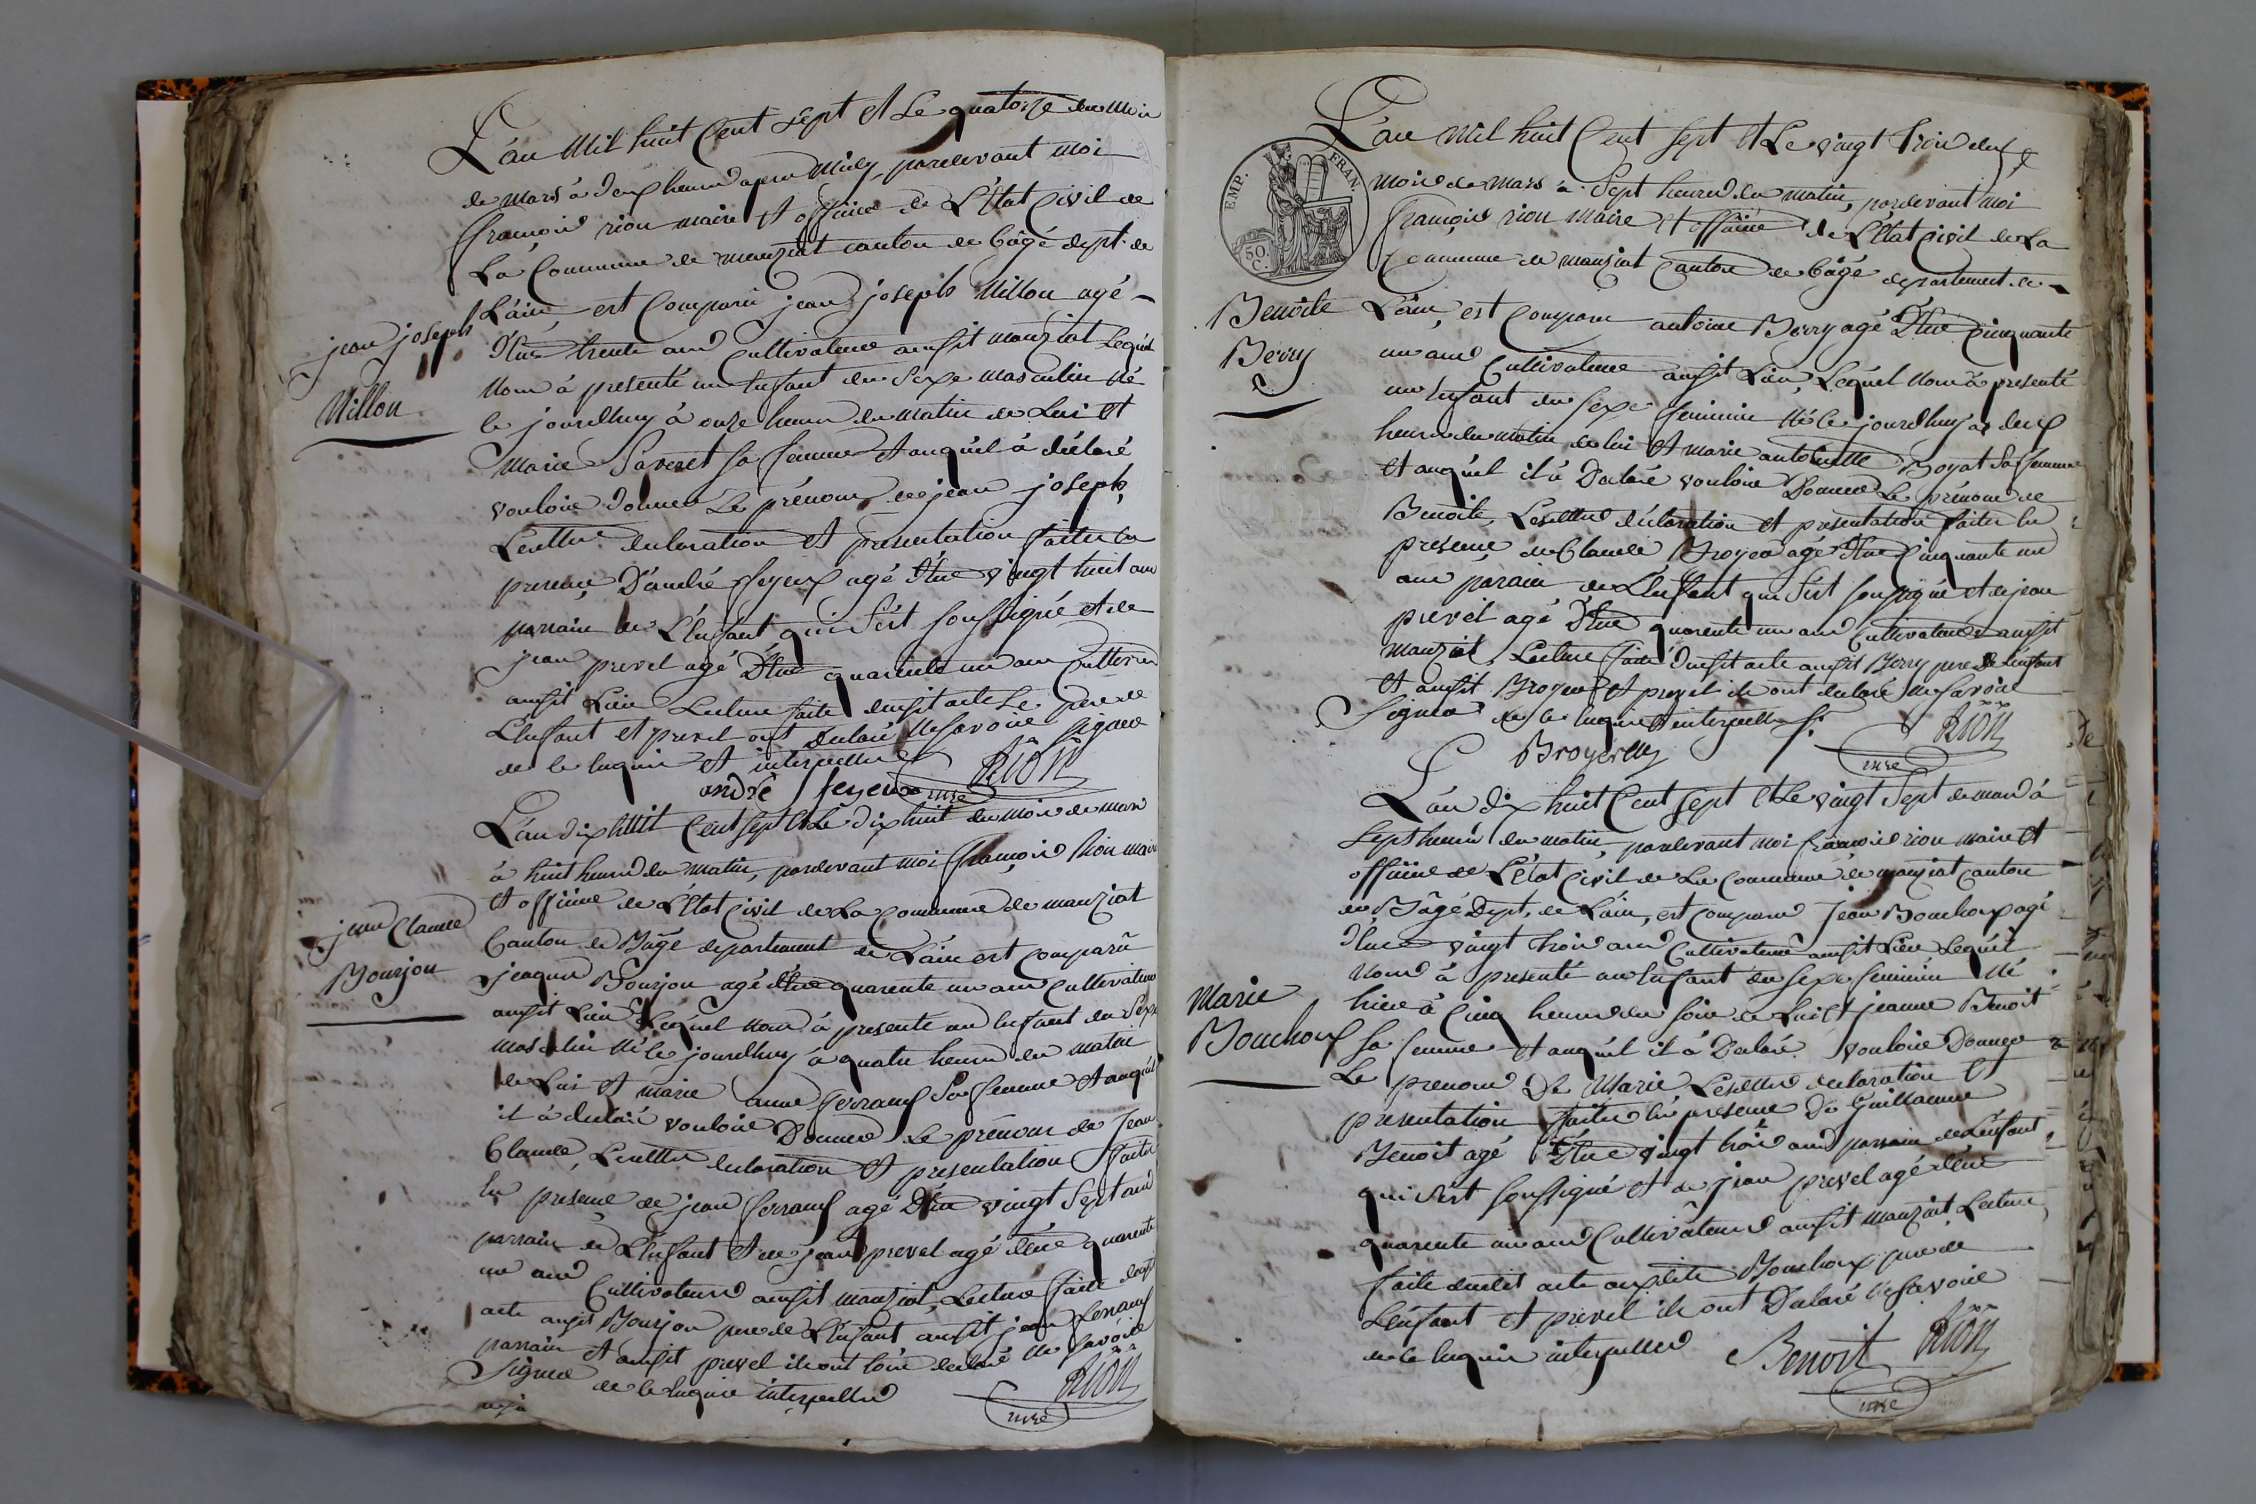 L'an mil huit cent sept et le quatorze du mois
de mars à deux heures apres midy, pardevant moi
françois rion maire et officier de L'Etat Civil de
La Commune de manziat canton de bâgé dept. de
L'ain, est comparu jean joseph Millon agé
jean joseph
Millon
d'Eus trente ans Cultivateur audit manziat Lequel
nous à presenté un Enfant du sexe masculin né
le jourdhuy à onze heures du matin de Lui et
Marie Saveret sa femme et auquel à déclaré
vouloir donner Le prénom de jean joseph,
Lesdittes declaration et presentation faites En
presence D'andré feyeux agé d'Eus vingt huit ans
parrain de L'Enfant qui s'est soussigné et de
jean prevel agé D'Eus quarente un ans Cultivateur
audit Lieu Lecture faite dudit acte Le pere de
L'Enfant et prevel ont declaré ne savoir signer
de ce Enquis et interpellés
andré feyeux Rion
mre
L'an dix huit Cent sept et Le dix huit du mois de mars
à huit heures du matin, pardevant moi françois Rion maire
et officier de L'Etat Civil de La Commune de manziat
jean Claude
Bourjon
Canton de Bâgé departement de L'ain est comparu
jeaques Bourjon agé d'Eus quarente un ans Cultivateur
audit Lieu Lequel nous à presenté un Enfant du Sexe
masculin né le jourdhuy à quatre heures du matin
de Lui et marie anne ferrand Sa femme et auquel
il à declaré vouloir Donner Le prénom de Jean
Claude, Lesdittes declaration et presentation faites
En presence de jean ferrand agé D'Eus vingt Sept ans
parrain de L'Enfant et de jean prevel agé d'Eus quarente
un ans Cultivateurs audit manziat, Lecture faite dudit
acte audit Bourjon pere de L'Enfant audit jean ferrand
parrain et audit prevel ils ont tous declaré ne savoir
signer de ce Enquis interpellés
Rion
mre
L'an mil huit Cent sept et Le vingt trois du
EMP. FRAN.
50. C.
mois de mars à Sept heures du matin, pardevant moi
françois rion maire et officier de L'Etat Civil de La
Commune de manziat Canton de bâgé departement de
Benoite
Berry
L'ain, est comparu antoine Berry agé D'Eus Cinquante
un ans Cultivateur audit Lieu, Lequel nous à presenté
un Enfant du sexe feminin né le jourdhuy à deux
heures du matin de lui et marie antoinette Boyat Sa femme
et auquel il à Declaré vouloir Donner Le prénom de
Benoite, Lesdittes declaration et presentation faites En
presence de Claude Broyer agé d'Eus Cinquante un
ans parain de L'Enfant qui s'est soussigné et de jean
prevel agé D'Eus quarente un ans Cultivateurs audit
manziat, Lecture faite dudit acte audit Berry pere de L'Enfant
et audit Broyer et prevel ils ont declaré ne savoir
Signer de ce Enquis et interpellés
Broyer Rion
mre
L'an dix huit Cent sept et Le vingt Sept de mars à
sept heures du matin, pardevant moi françois rion maire et
officier de L'Etat Civil de La Commune de manziat Canton
de Bâgé Dept. de L'ain, est comparu Jean Bouchoux agé
d'Eus vingt trois ans Cultivateur audit Lieu Lequel
nous à presenté un Enfant du sexe feminin né
Marie
Bouchoux
hier à Cinq heures du soir de Lui et jeanne Benoit
sa femme et auquel il à Declaré vouloir Donner
Le prenom De Marie Lesdittes declaration et
presentation faites En presence De Guillaume
Benoit agé d'Eus vingt trois ans parrain de L'Enfant
qui s'est soussigné et de jean prevel agé d'Eus
quarente un ans Cultivateurs audit manziat, Lecture
faite dudit acte audit Bouchoux pere de
L'Enfant et prevel ils ont Declaré ne savoir
de ce Enquis interpellés Benoit Rion
mre